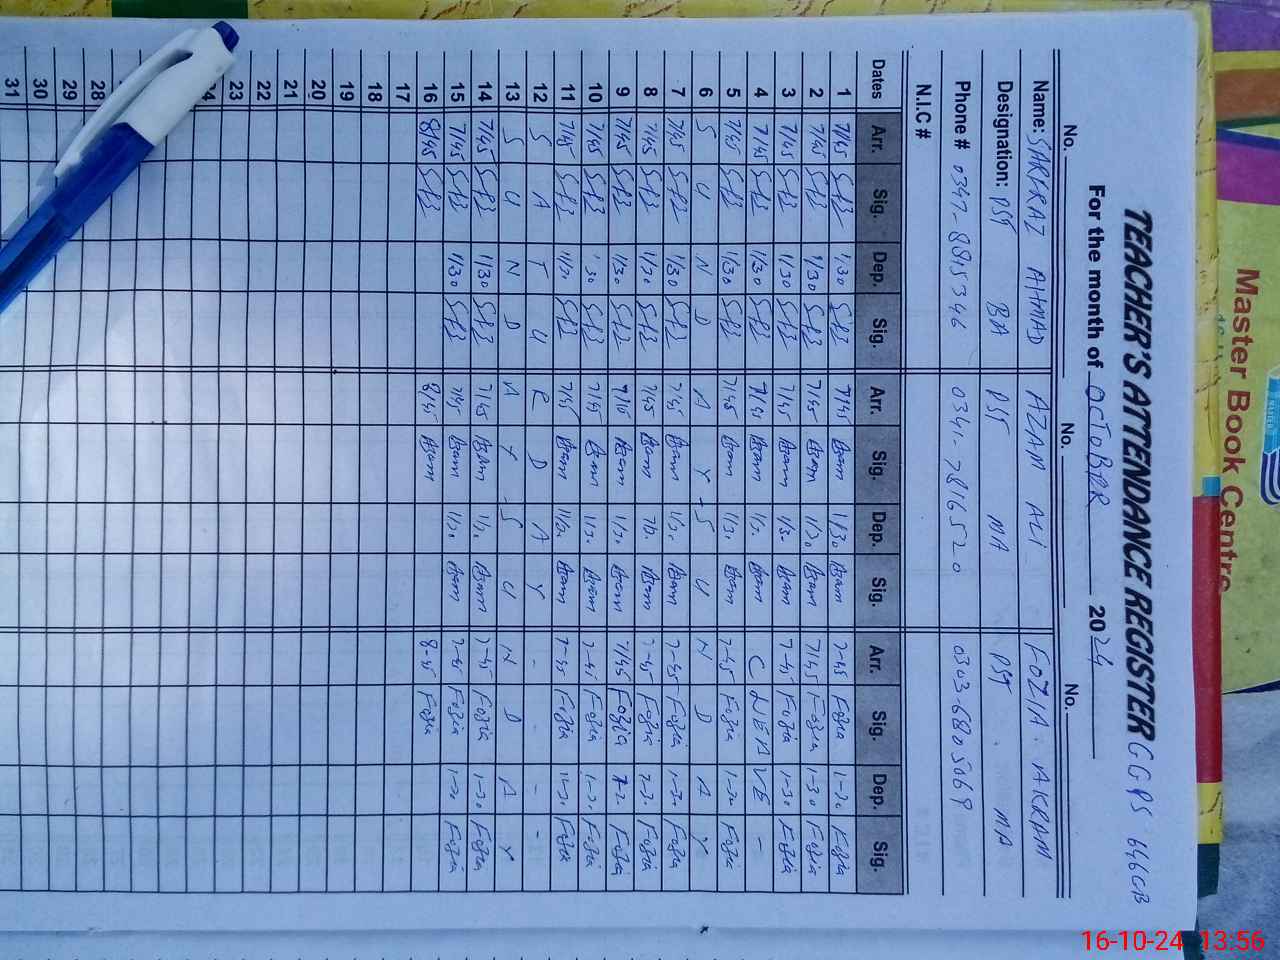 TEACHER'S ATTENDANCE REGISTER GGPS 646GB
For the month of OCTOBRR 2024
No. No. No.
Name: SARFRAZ AHMAD AZAM ALI FOZIA AKRAM
Designation: PST BA PST MA PST MA
Phone # 0347-8815346 0341-7816520 0303-6805069
N.I.C #
Dates Arr. Sig. Dep. Sig. Arr. Sig. Dep. Sig. Arr. Sig. Dep. Sig.
1 7/45 1/30 7/45 Azam 1/30 Azam 7-45 Fozia 1-30 Fozia
2 7/45 1/30 7/45 Azam 1/30 Azam 7/45 Fozia 1-30 Fozia
3 7/45 1/30 7/45 Azam 1/3. Azam 7-45 Fozia 1-30 Fozia
4 7/45 1/30 7/45 Azam 1/3. Azam C LEAVE -
5 7/45 1/30 7/45 Azam 1/30 Azam 7-45 Fozia 1-30 Fozia
6 S U N D A Y - S U N D A Y
7 7/45 1/30 7/45 Azam 1/3. Azam 7-45 Fozia 1-30 Fozia
8 7/45 1/30 7/45 Azam Azam 7-45 Fozia Fozia
9 7/45 1/30 Azam 1/30 Azam 7/45 Fozia Fozia
10 7/45 30 7/45 Azam 1/3. Azam 7-45 Fozia 1-30 Fozia
11 7/45 11/30 7/45 Azam 11/30 Azam 7-45 Fozia 11-30 Fozia
12 S A T U R D A Y - - -
13 S U N D A Y - S U N D A Y
14 7/45 1/30 7/45 Azam 1/3. Azam 7-45 Fozia 1-30 Fozia
15 7/45 1/30 7/45 Azam 1/3. Azam 7-45 Fozia 1-30 Fozia
16 8/45 8/45 Azam 8-45 Fozia
17
18
19
20
21
22
23
24
28
29
30
31
Master Book Centre
16-10-24 13:56